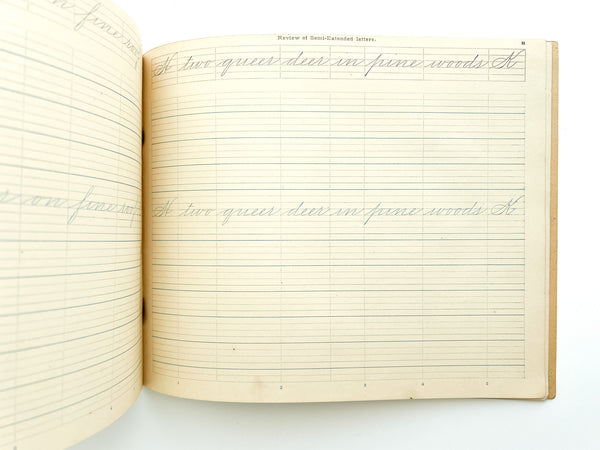 on fine
Review of Semi-Extended letters.
K two queer deer in pine woods K
on fine
K two queer deer in pine woods K
1 2 3 4 5